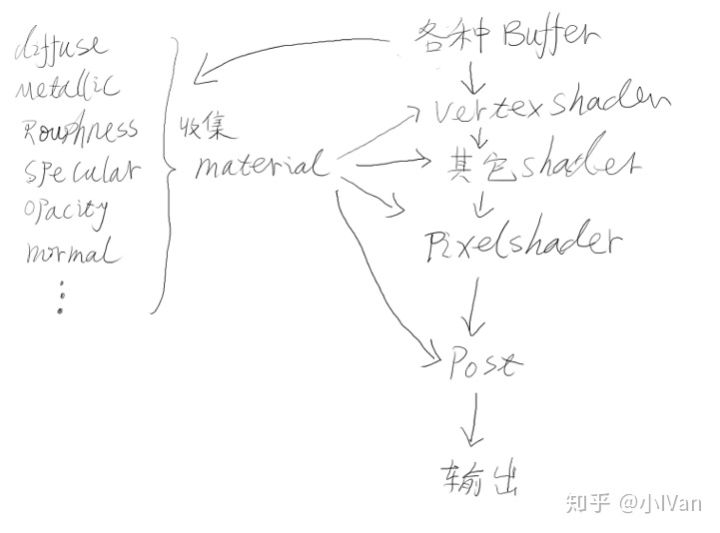 diffuse
Metallic
Roughness
Specular
Opacity
normal
⋮
收集
material
各种Buffer
Vertexshader
其它shader
Pixelshader
Post
输出
知乎 @小IVan